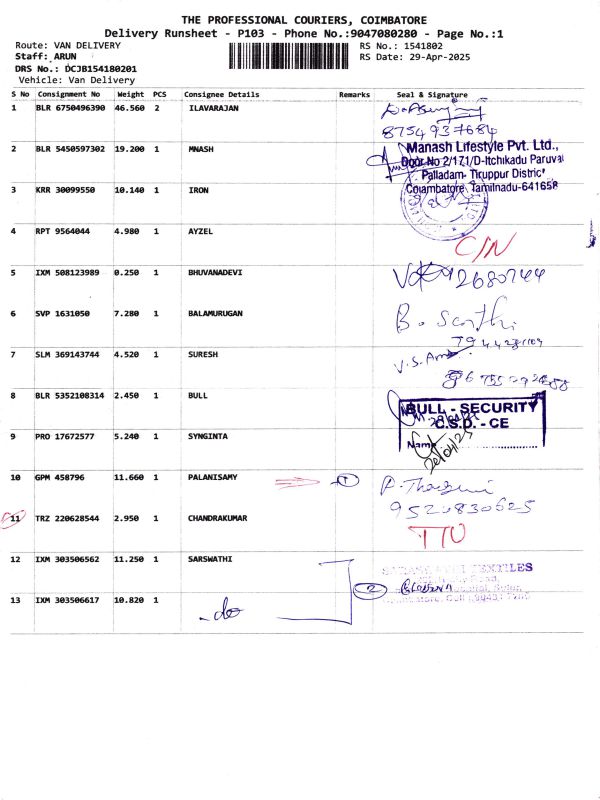 THE PROFESSIONAL COURIERS, COIMBATORE
Delivery Runsheet - P103 - Phone No.:9047080280 - Page No.:1
Route: VAN DELIVERY
Staff: ARUN
DRS No.: DCJB154180201
Vehicle: Van Delivery
RS No.: 1541802
RS Date: 29-Apr-2025
S No Consignment No Weight PCS Consignee Details Remarks Seal & Signature
1 BLR 6750496390 46.560 2 ILAVARAJAN
8754937684
2 BLR 5450597302 19.200 1 MNASH
Manash Lifestyle Pvt. Ltd.,
Door No 2/171/D-Itchikadu Paruvai
Palladam- Tiruppur District
Coiambatore, Tamilnadu-641658
3 KRR 30099550 10.140 1 IRON
4 RPT 9564044 4.980 1 AYZEL
C/N
5 IXM 508123989 0.250 1 BHUVANADEVI
6 SVP 1631050 7.280 1 BALAMURUGAN
B. Sarthi
7 SLM 369143744 4.520 1 SURESH
8 BLR 5352108314 2.450 1 BULL
BULL - SECURITY
C.S.D. - CE
Name
9 PRO 17672577 5.240 1 SYNGINTA
10 GPM 458796 11.660 1 PALANISAMY
1
9520830625
11 TRZ 220628544 2.950 1 CHANDRAKUMAR
12 IXM 303506562 11.250 1 SARSWATHI
TEXTILES
2
13 IXM 303506617 10.820 1
- do